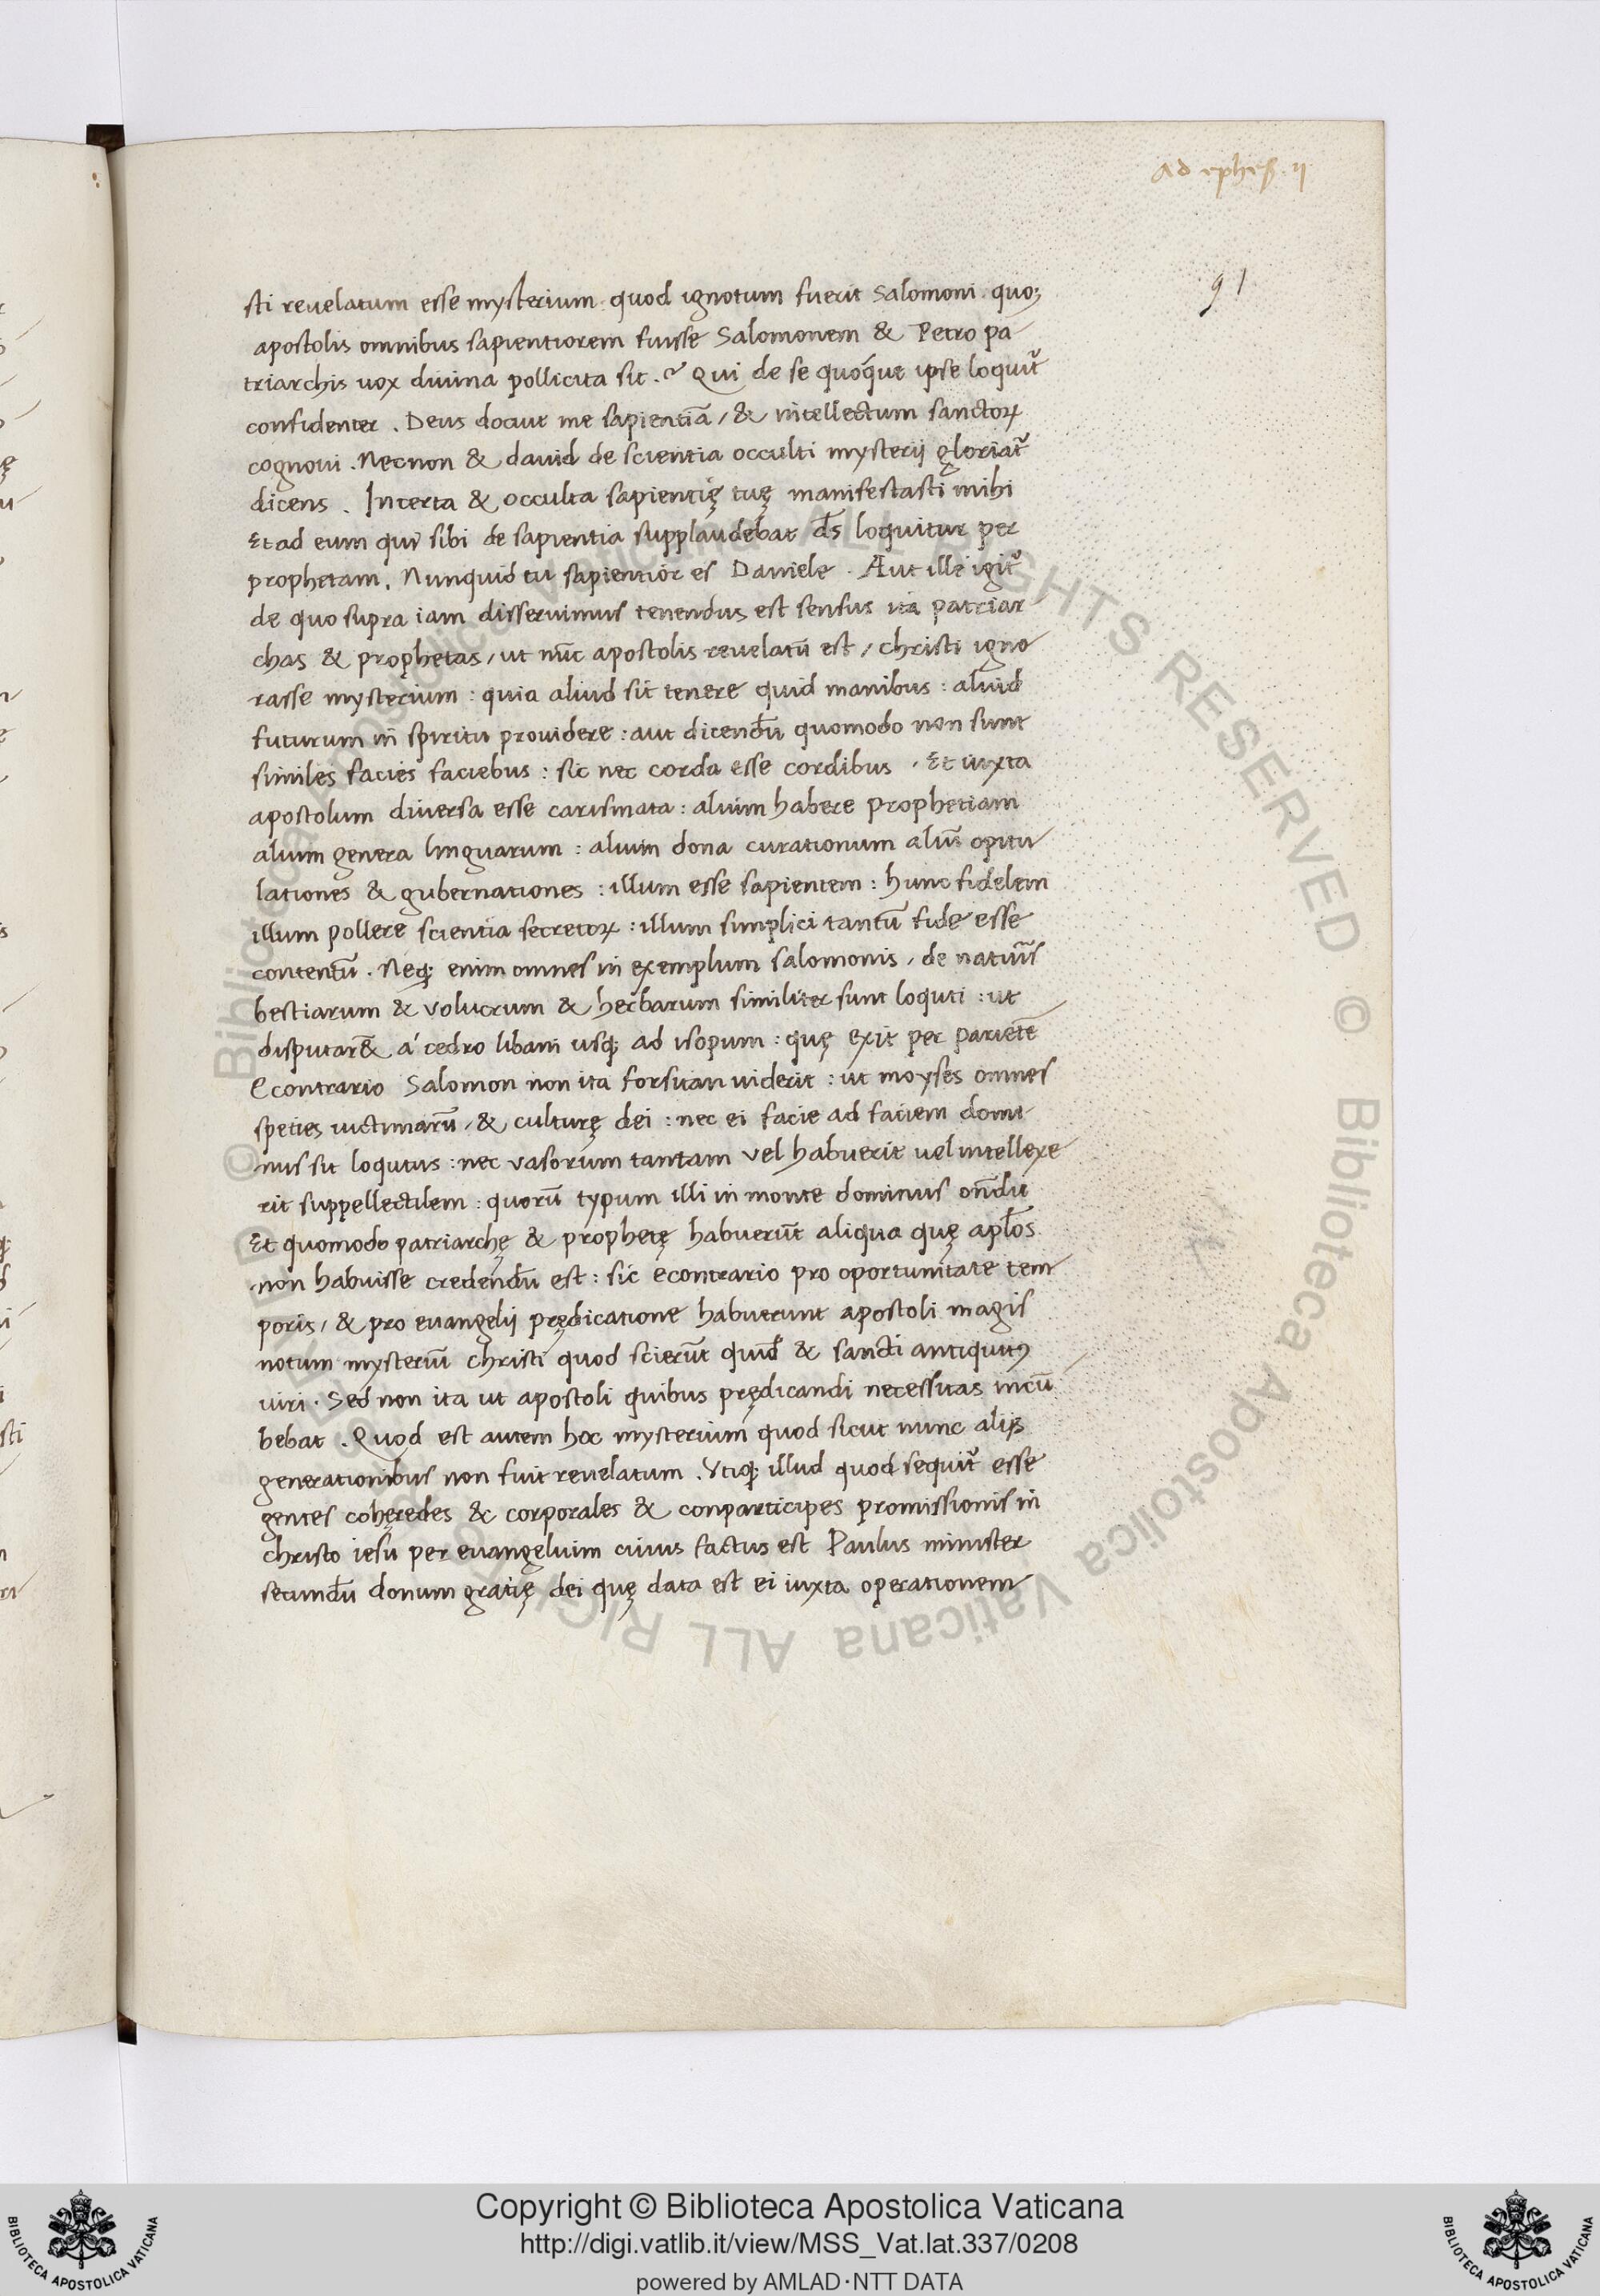 ad ephes. ij
91
sti reuelatum esse mysterium. quod ignotum fuerit Salomoni. quoꝫ
apostolis omnibus sapientiorem fuisse Salomonem & Petro pa
triarchis uox diuina pollicita sit. ? Qui de se quoq́ue ipse loquit᷑
confidenter. Deus docuit me sapientiā, & intellectum sanctoꝝ
cognoui. Necnon & dauid de scientia occulti mysterij gloriat᷑
dicens. Incerta & occulta sapientię tuę manifestasti mihi
Et ad eum qui sibi de sapientia supplaudebat ds̄ loquitur per
prophetam. Nunquid tu sapientior es Daniele. Aut ille igit᷑
de quo supra iam disseruimus tenendus est sensus ita patriar
chas & prophetas, ut nūc apostolis reuelatū est, christi igno
rasse mysterium : quia aliud sit tenere quid manibus : aliud
futurum in spiritu prouidere : aut dicendū quomodo non sunt
similes facies faciebus : sic nec corda esse cordibus. Et iuxta
apostolum diuersa esse carismata : alium habere prophetiam
alium genera linguarum : alium dona curationum aliū opitu
lationes & gubernationes : illum esse sapientem : hunc fidelem
illum pollere scientia secretoꝝ : illum simplici tantū fide esse
contentū. Neq; enim omnes in exemplum salomonis, de natur̄is
bestiarum & volucrum & herbarum similiter sunt loquti : ut
disputar& á cedro libani usq; ad isopum : quę exit per parietē
Econtrario Salomon non ita forsitan uiderit : ut moyses omnes
speties uictimarū, & culturę dei : nec ei facie ad faciem domi
nus sit loqutus : nec vasorum tantam vel habuerit uel intellexe
rit suppellectilem : quorū typum illi in monte dominus on̄dit
Et quomodo patriarchę & prophetę habuerūt aliqua quę apl̄os
non habuisse credendū est : sic econtrario pro oportunitate tem
poris, & pro euangelij prędicatione habuerunt apostoli magis
notum mysteriū christi quod scierūt quid̄ & sancti antiquitꝰ
uiri. Sed non ita ut apostoli quibus prędicandi necessitas incū
bebat. Quod est autem hoc mysterium quod sicut nunc alijs
generationibus non fuit reuelatum. Vtiq; illud quod sequit᷑ esse
gentes coheredes & corporales & conparticipes promissionis in
christo iesu per euangelium cuius factus est Paulus minister
secundū donum gratię dei quę data est ei iuxta operationem
© Biblioteca Apostolica Vaticana ALL RIGHTS RESERVED
Copyright © Biblioteca Apostolica Vaticana
http://digi.vatlib.it/view/MSS_Vat.lat.337/0208
powered by AMLAD·NTT DATA
BIBLIOTECA APOSTOLICA VATICANA
BIBLIOTECA APOSTOLICA VATICANA